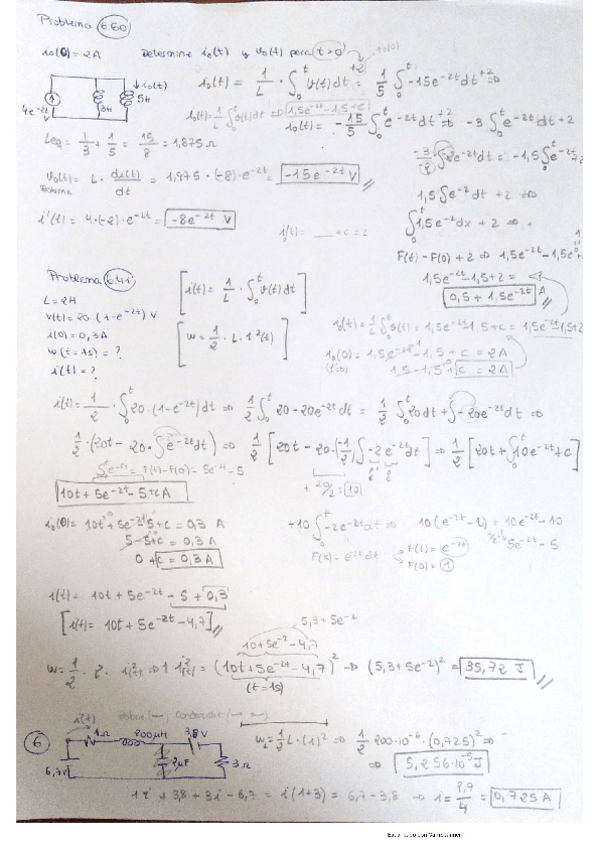 Problema 6.60
i₀(0) = 2A Determine i₀(t) y v₀(t) para t>0
4e^-2t 3H 5H ↓i₀(t)
i₀(t) = 1/L · ∫₀ᵗ v(t)dt +2 = 1/5 ∫₀ᵗ -15e^-2t dt +2 ⇒
i₀(t) = 1/L ∫₀ᵗ v(t)dt ⇒ 1,5e^-2t - 1,5 + C
i₀(t) = -15/5 ∫₀ᵗ e^-2t dt +2 ⇒ -3 ∫₀ᵗ e^-2t dt + 2
Leq = 1/3 + 1/5 = 15/8 = 1,875 Ω
-3/-2 ∫ -2e^-2t dt = -1,5 ∫₀ᵗ e^-2t
v₀(t) = L · di(t)/dt = 1,875 · (-8) · e^-2t = -15e^-2t V
1,5 ∫ e^-2 dt + 2 ⇒
i'(t) = 4·(-2)·e^-2t = -8e^-2t V
i₀(t) = __ + c = 2
∫₀ᵗ 1,5e^-2t dx + 2 ⇒
F(t) - F(0) + 2 ⇒ 1,5e^-2t - 1,5e⁰
1,5e^-2t - 1,5 + 2 =
0,5 + 1,5e^-2t A
Problema 6.41
[i(t) = 1/L · ∫₀ᵗ v(t)dt]
L = 2H
v(t) = 20·(1-e^-2t) V
i(0) = 0,3A
w(t=1s) = ?
i(t) = ?
[w = 1/2 · L · i²(t)]
i₀(t) = 1/L ∫₀ᵗ v(t) = 1,5e^-2t - 1,5 + c = 1,5e^-2t - 1,5 + 2
i₀(0) = 1,5e^-2t - 1,5 + c = 2A
(t=0) 1,5 - 1,5 + c = 2A
i(t) = 1/2 · ∫₀ᵗ 20·(1-e^-2t)dt ⇒ 1/2 ∫₀ᵗ 20-20e^-2t dt = 1/2 ∫₀ᵗ 20dt + ∫ -20e^-2t dt ⇒
1/2 · (20t - 20· ∫ e^-2t dt) ⇒ 1/2 [20t - 20·(-1/2) ∫ -2e^-2t dt] ⇒ 1/2 [20t + ∫₀ᵗ 10e^-2t + c]
= F(t) - F(0) = 5e^-2t - 5
+ 20/2 = 10
10t + 5e^-2t - 5 + c A
i₀(0) = 10t + 5e^-2t - 5 + c = 0,3 A
5 - 5 + c = 0,3 A
0 + c = 0,3 A
+10 ∫₀ᵗ -2e^-2t dt ⇒ 10(e^-2t - 1) = 10e^-2t - 10
F(x) = e^-2t dt F(t) = e^-2t
F(0) = 1
5e^-2t - 5
i(t) = 10t + 5e^-2t - 5 + 0,3
[i(t) = 10t + 5e^-2t - 4,7]
5,3 + 5e^-2
10 + 5e^-2 - 4,7
w = 1/2 · 2 · i²(t) ⇒ 1 · i²(t) = (10t + 5e^-2t - 4,7)² ⇒ (5,3 + 5e^-2)² = 35,72 J
(t=1s)
6 i(t) 1Ω 200µH 3,8V
6,7V 2µF 3Ω
w_L = 1/2 L·(i)² ⇒ 1/2 200·10^-6 · (0,725)² ⇒
⇒ 5,256·10^-5 J
1i + 3,8 + 3i - 6,7 = i(1+3) = 6,7 - 3,8 → i = 2,9/4 = 0,725 A